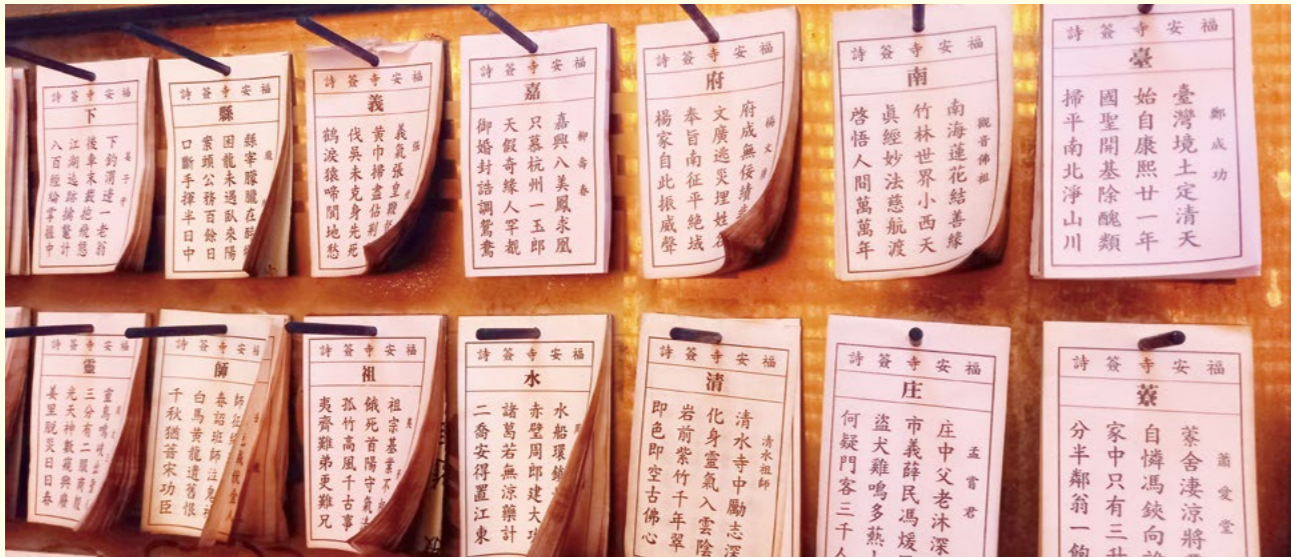 福安寺簽詩
臺
鄭成功
臺灣境土定清天
始自康熙廿一年
國聖開基除醜類
掃平南北淨山川
福安寺簽詩
南
觀音佛祖
南海蓮花結善緣
竹林世界小西天
眞經妙法慈航渡
啓悟人間萬萬年
福安寺簽詩
府
楊文廣
府成無佞績
文廣逃災埋姓名
奉旨南征平絕域
楊家自此振威聲
福安寺簽詩
嘉
柳壽春
嘉興八美鳳求凰
只慕杭州一玉郎
天假奇緣人罕覯
御婚封誥調鴛鴦
福安寺簽詩
義
張
義氣張皇鞭
黃巾掃盡佔荊
伐吳未克身先死
鶴淚猿啼闔地愁
福安寺簽詩
縣
龐
縣宰朦朧在醉
困龍未遇臥來陽
案頭公務百餘日
口斷手揮半日中
福安寺簽詩
下
姜子牙
下釣渭邊一老翁
後車未載抱飛
江湖遁跡擒鰲計
八百經綸掌握中
福安寺簽詩
藔
蕭愛堂
藔舍淒涼將
自憐馮鋏向
家中只有三升
分半鄰翁一飽
福安寺簽詩
庄
孟嘗君
庄中父老沐深
市義薛民馮煖
盜犬雞鳴多蓺
何疑門客三千人
福安寺簽詩
清
清水祖師
清水寺中勵志深
化身靈氣入雲陰
岩前紫竹千年翠
即色即空古佛心
福安寺簽詩
水
水船環鎖
赤壁周郎建大功
諸葛若無涼藥計
二喬安得置江東
福安寺簽詩
祖
祖宗基業不
餓死首陽守氣
孤竹高風千古事
夷齊難弟更難兄
福安寺簽詩
師
師征
春詔班師泣鬼神
白馬黃龍遺舊恨
千秋猶晉宋功臣
福安寺簽詩
靈
靈鳥鳴岐出聖
三分有二服商殷
元天神數窺興廢
羑里脫災日日春